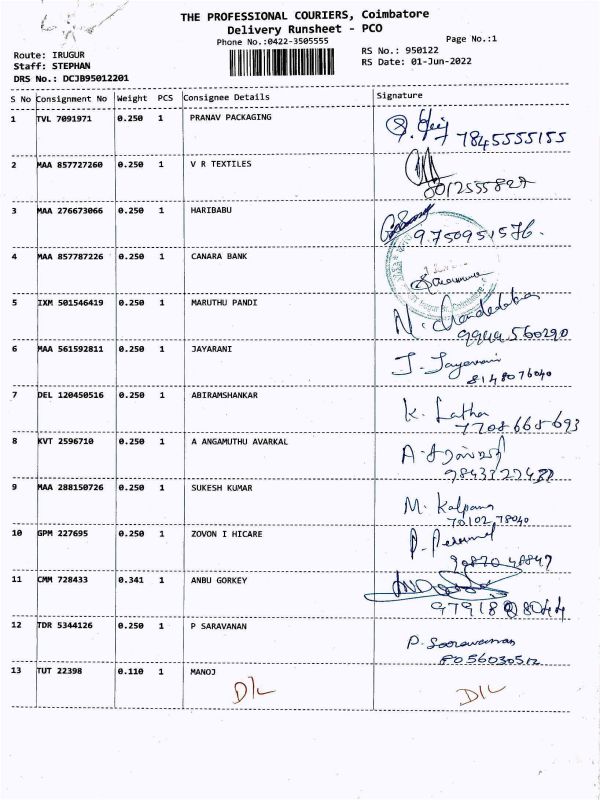 THE PROFESSIONAL COURIERS, Coimbatore
Delivery Runsheet - PCO
Phone No.:0422-3505555
Page No.:1
Route: IRUGUR
Staff: STEPHAN
DRS No.: DCJB95012201
RS No.: 950122
RS Date: 01-Jun-2022
S No Consignment No Weight PCS Consignee Details Signature
1 TVL 7091971 0.250 1 PRANAV PACKAGING
7845555155
2 MAA 857727260 0.250 1 V R TEXTILES
8012555827
3 MAA 276673066 0.250 1 HARIBABU
9750951576.
4 MAA 857787226 0.250 1 CANARA BANK
5 IXM 501546419 0.250 1 MARUTHU PANDI
9944560290
6 MAA 561592811 0.250 1 JAYARANI
J. Jayarani
8148076040
7 DEL 120450516 0.250 1 ABIRAMSHANKAR
K. Latha
7708668693
8 KVT 2596710 0.250 1 A ANGAMUTHU AVARKAL
9 MAA 288150726 0.250 1 SUKESH KUMAR
M. Kalpana
70102 78040
10 GPM 227695 0.250 1 ZOVON I HICARE
P. Perumal
90870 48847
11 CMM 728433 0.341 1 ANBU GORKEY
12 TDR 5344126 0.250 1 P SARAVANAN
P. Saaravanan
8056030512
13 TUT 22398 0.110 1 MANOJ
D/L D/L